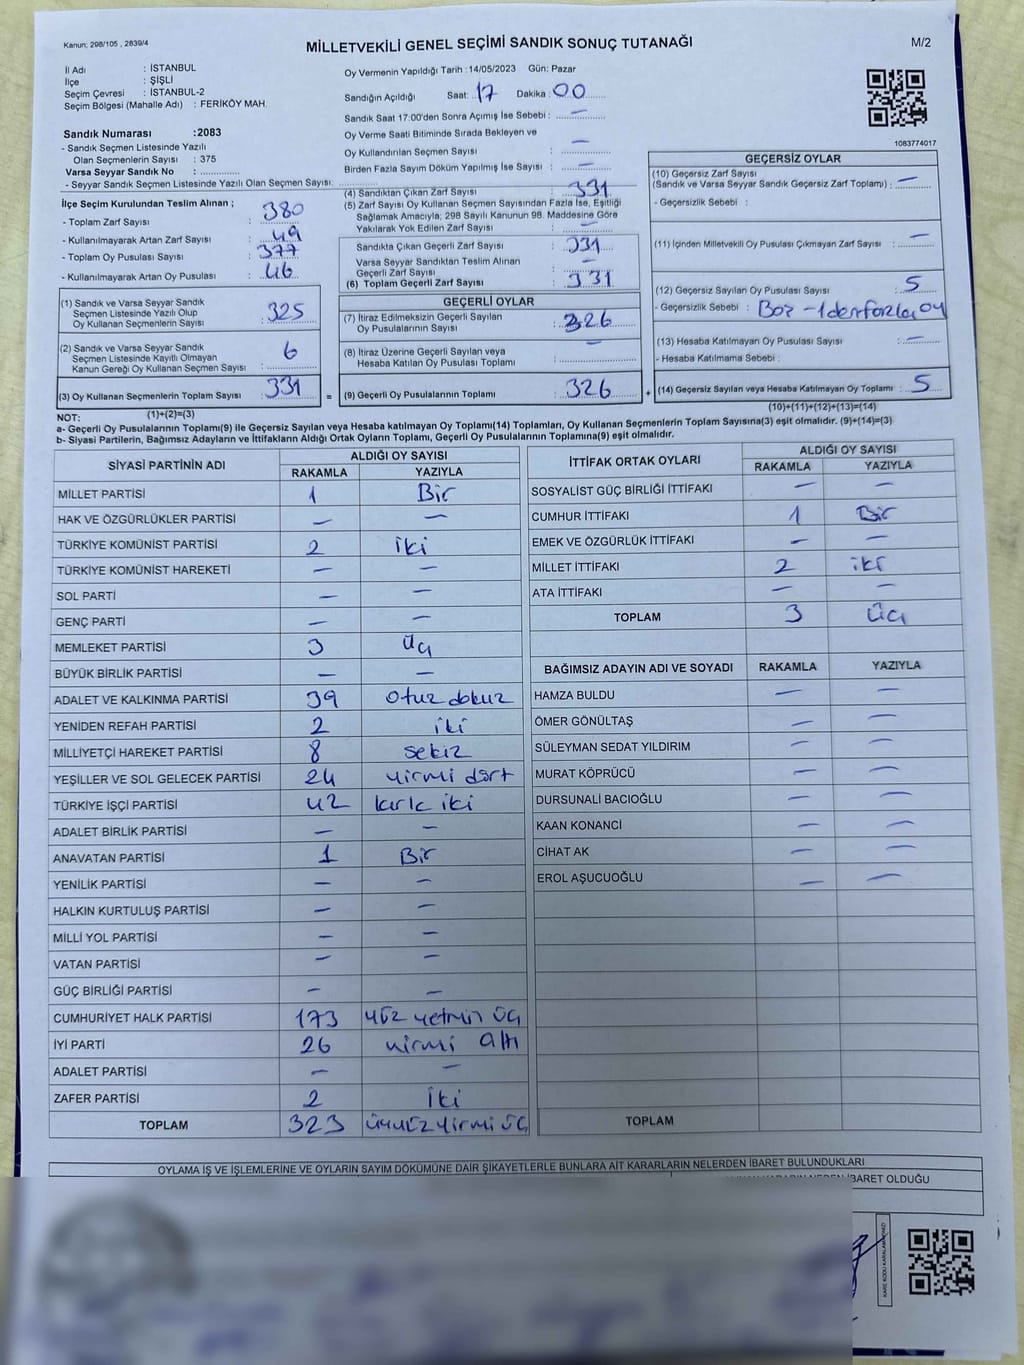 Kanun; 298/105 , 2839/4
MİLLETVEKİLİ GENEL SEÇİMİ SANDIK SONUÇ TUTANAĞI
M/2
İl Adı : İSTANBUL
İlçe : ŞİŞLİ
Seçim Çevresi : İSTANBUL-2
Seçim Bölgesi (Mahalle Adı) : FERİKÖY MAH.
Sandık Numarası :2083
- Sandık Seçmen Listesinde Yazılı
Olan Seçmenlerin Sayısı : 375
Varsa Seyyar Sandık No :
- Seyyar Sandık Seçmen Listesinde Yazılı Olan Seçmen Sayısı:
Oy Vermenin Yapıldığı Tarih :14/05/2023 Gün: Pazar
Sandığın Açıldığı Saat: 17 Dakika : 00
Sandık Saat 17:00'den Sonra Açılmış İse Sebebi : —
Oy Verme Saati Bitiminde Sırada Bekleyen ve
Oy Kullandırılan Seçmen Sayısı : —
Birden Fazla Sayım Döküm Yapılmış İse Sayısı : —
1083774017
İlçe Seçim Kurulundan Teslim Alınan ;
- Toplam Zarf Sayısı : 380
- Kullanılmayarak Artan Zarf Sayısı : 49
- Toplam Oy Pusulası Sayısı : 377
- Kullanılmayarak Artan Oy Pusulası : 46
(1) Sandık ve Varsa Seyyar Sandık
Seçmen Listesinde Yazılı Olup
Oy Kullanan Seçmenlerin Sayısı : 325
(2) Sandık ve Varsa Seyyar Sandık
Seçmen Listesinde Kayıtlı Olmayan
Kanun Gereği Oy Kullanan Seçmen Sayısı : 6
(3) Oy Kullanan Seçmenlerin Toplam Sayısı : 331
(4) Sandıktan Çıkan Zarf Sayısı : 331
(5) Zarf Sayısı Oy Kullanan Seçmen Sayısından Fazla İse, Eşitliği
Sağlamak Amacıyla; 298 Sayılı Kanunun 98. Maddesine Göre
Yakılarak Yok Edilen Zarf Sayısı : —
Sandıkta Çıkan Geçerli Zarf Sayısı : 331
Varsa Seyyar Sandıktan Teslim Alınan
Geçerli Zarf Sayısı : —
(6) Toplam Geçerli Zarf Sayısı : 331
GEÇERLİ OYLAR
(7) İtiraz Edilmeksizin Geçerli Sayılan
Oy Pusulalarının Sayısı : 326
(8) İtiraz Üzerine Geçerli Sayılan veya
Hesaba Katılan Oy Pusulası Toplamı : —
= (9) Geçerli Oy Pusulalarının Toplamı : 326
GEÇERSİZ OYLAR
(10) Geçersiz Zarf Sayısı
(Sandık ve Varsa Seyyar Sandık Geçersiz Zarf Toplamı) : —
- Geçersizlik Sebebi :
(11) İçinden Milletvekili Oy Pusulası Çıkmayan Zarf Sayısı : —
(12) Geçersiz Sayılan Oy Pusulası Sayısı : 5
- Geçersizlik Sebebi :
(13) Hesaba Katılmayan Oy Pusulası Sayısı : —
- Hesaba Katılmama Sebebi :
+ (14) Geçersiz Sayılan veya Hesaba Katılmayan Oy Toplamı : 5
NOT: (1)+(2)=(3) (10)+(11)+(12)+(13)=(14)
a- Geçerli Oy Pusulalarının Toplamı(9) ile Geçersiz Sayılan veya Hesaba katılmayan Oy Toplamı(14) Toplamları, Oy Kullanan Seçmenlerin Toplam Sayısına(3) eşit olmalıdır. (9)+(14)=(3)
b- Siyasi Partilerin, Bağımsız Adayların ve İttifakların Aldığı Ortak Oyların Toplamı, Geçerli Oy Pusulalarının Toplamına(9) eşit olmalıdır.
SİYASİ PARTİNİN ADI ALDIĞI OY SAYISI
RAKAMLA YAZIYLA
MİLLET PARTİSİ 1 Bir
HAK VE ÖZGÜRLÜKLER PARTİSİ — —
TÜRKİYE KOMÜNİST PARTİSİ 2 iki
TÜRKİYE KOMÜNİST HAREKETİ — —
SOL PARTİ — —
GENÇ PARTİ — —
MEMLEKET PARTİSİ 3 Üç
BÜYÜK BİRLİK PARTİSİ — —
ADALET VE KALKINMA PARTİSİ 39 otuz dokuz
YENİDEN REFAH PARTİSİ 2 iki
MİLLİYETÇİ HAREKET PARTİSİ 8 sekiz
YEŞİLLER VE SOL GELECEK PARTİSİ 24 yirmi dört
TÜRKİYE İŞÇİ PARTİSİ 42 kırk iki
ADALET BİRLİK PARTİSİ — —
ANAVATAN PARTİSİ 1 Bir
YENİLİK PARTİSİ — —
HALKIN KURTULUŞ PARTİSİ — —
MİLLİ YOL PARTİSİ — —
VATAN PARTİSİ — —
GÜÇ BİRLİĞİ PARTİSİ — —
CUMHURİYET HALK PARTİSİ 173 yüz yetmiş üç
İYİ PARTİ 26 yirmi altı
ADALET PARTİSİ — —
ZAFER PARTİSİ 2 İki
TOPLAM 323 üçyüz yirmi üç
İTTİFAK ORTAK OYLARI ALDIĞI OY SAYISI
RAKAMLA YAZIYLA
SOSYALİST GÜÇ BİRLİĞİ İTTİFAKI — —
CUMHUR İTTİFAKI 1 Bir
EMEK VE ÖZGÜRLÜK İTTİFAKI — —
MİLLET İTTİFAKI 2 iki
ATA İTTİFAKI — —
TOPLAM 3 Üç
BAĞIMSIZ ADAYIN ADI VE SOYADI RAKAMLA YAZIYLA
HAMZA BULDU — —
ÖMER GÖNÜLTAŞ — —
SÜLEYMAN SEDAT YILDIRIM — —
MURAT KÖPRÜCÜ — —
DURSUNALİ BACIOĞLU — —
KAAN KONANCİ — —
CİHAT AK — —
EROL AŞUCUOĞLU — —
TOPLAM
OYLAMA İŞ VE İŞLEMLERİNE VE OYLARIN SAYIM DÖKÜMÜNE DAİR ŞİKAYETLERLE BUNLARA AİT KARARLARIN NELERDEN İBARET BULUNDUKLARI
İBARET OLDUĞU